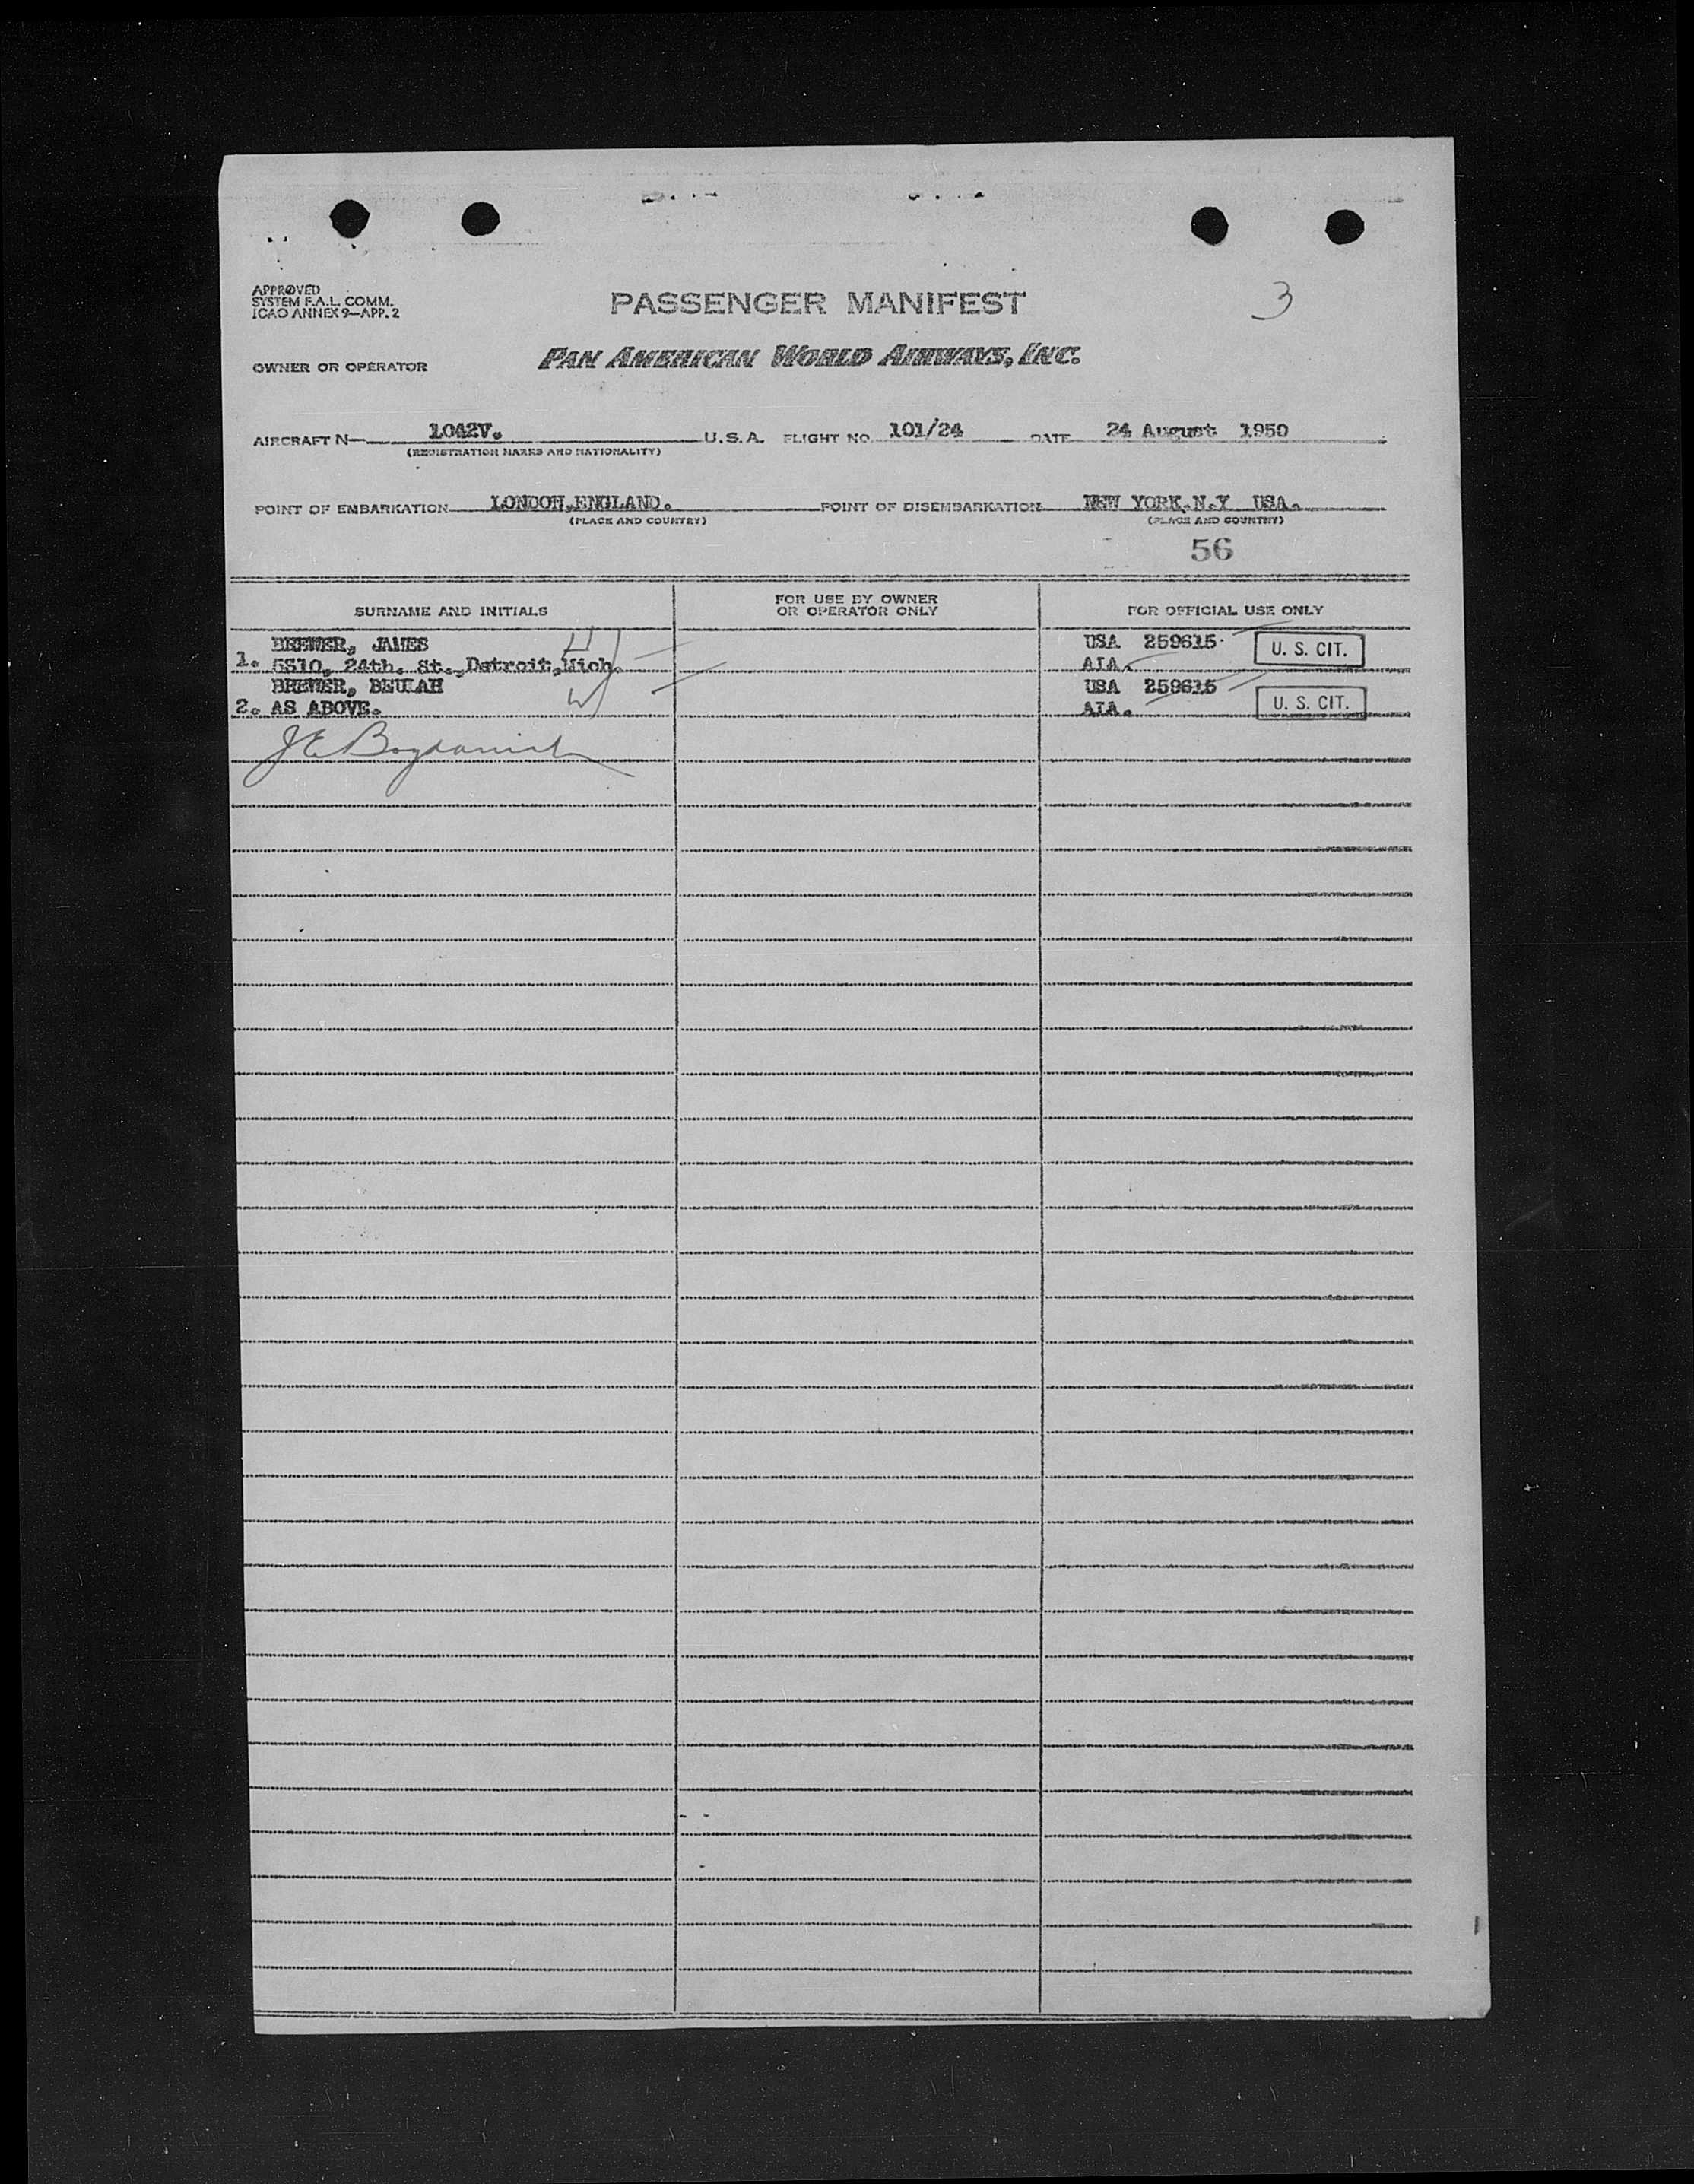 APPROVED
SYSTEM F.A.L. COMM.
ICAO ANNEX 9—APP. 2
PASSENGER MANIFEST
3
OWNER OR OPERATOR
PAN AMERICAN WORLD AIRWAYS, INC.
AIRCRAFT N— 1042V. U.S.A. FLIGHT NO. 101/24 DATE 24 August 1950
(REGISTRATION MARKS AND NATIONALITY)
POINT OF EMBARKATION LONDON,ENGLAND. POINT OF DISEMBARKATION NEW YORK.N.Y USA.
(PLACE AND COUNTRY) (PLACE AND COUNTRY)
56
SURNAME AND INITIALS FOR USE BY OWNER OR OPERATOR ONLY FOR OFFICIAL USE ONLY
BREWER, JAMES H USA 259615 U. S. CIT.
1. 5810, 24th. St., Detroit,Mich. AIA.
BREWER, BEULAH USA 259615
2. AS ABOVE. W AIA. U. S. CIT.